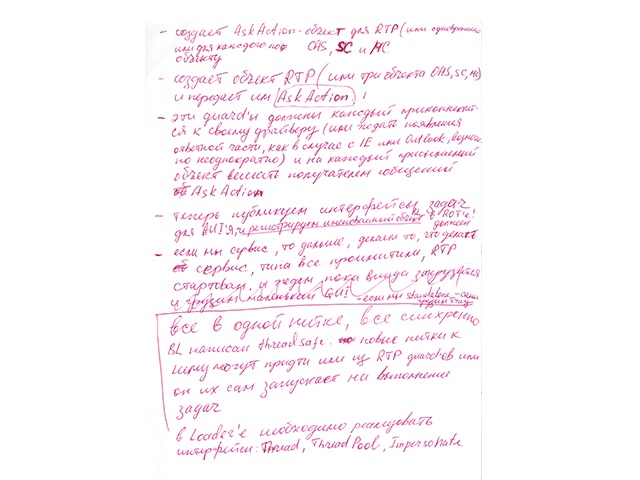 - создаёт AskAction-объект для RTP (или одновременно
или для каждого из OAS, SC и MC
объекту
- создаёт объект RTP (или три объекта OAS, SC, MC)
и передаёт им AskAction!
- эти guard'ы должны каждый приконнектит-
ся к своему драйверу (или ждать появления
ответной части, как в случае с IE или Outlook, возмож-
но неоднократно) и на каждый присылаемый
объект вешать получателем сообщений
AskAction
- теперь публикуем интерфейсы задач
для GUI'я, и регистрируем именованный объект BL в ROT'е!
должен
- если мы сервис, то дальше, делаем то, что делает
сервис, типа все проинитили, RTP
стартовали и ждём, пока винда загрузится
и грузим маленький GUI - если мы standalone - сами
грузим
все в одной нитке, все синхронно
BL написан threadsafe. новые нитки к
нему могут придти или из RTP guard'ов или
он их сам запускает на выполнение
задач
в Loader'е необходимо реализовать
интерфейсы: Thread, ThreadPool, Impersonate